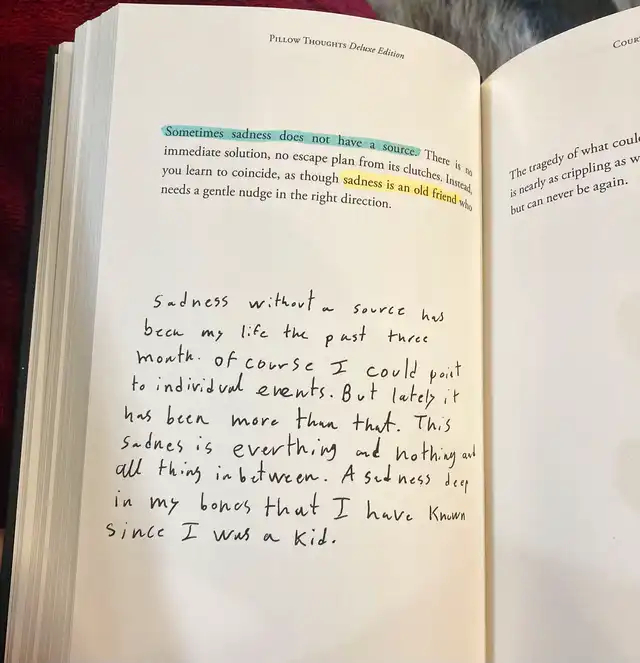 PILLOW THOUGHTS Deluxe Edition
Sometimes sadness does not have a source. There is no
immediate solution, no escape plan from its clutches. Instead,
you learn to coincide, as though sadness is an old friend who
needs a gentle nudge in the right direction.
sadness without a source has
been my life the past three
month. of course I could point
to individual events. But lately it
has been more than that. This
sadnes is everthing and nothing and
all thing in between. A sadness deep
in my bones that I have known
since I was a kid.
COUR
The tragedy of what coul
is nearly as crippling as w
but can never be again.